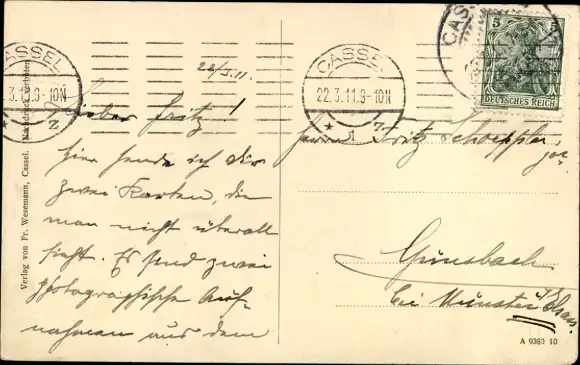 CASSEL
22.3.11.9-10N
* 1 z
CASSEL
3.11.9-10N
* z
CASSEL
5
DEUTSCHES REICH
22/3.11.
Lieber Fritz!
hier sende ich Dir
zwei Karten, die
man nicht überall
sieht. Es sind zwei
photographische Auf-
nahmen aus dem
Herrn Fritz Schoeppler
jr.
Günsbach
bei Münster i/Elsass.
Verlag von Fr. Wesemann, Cassel. Nachdruck verboten
A 9380 10